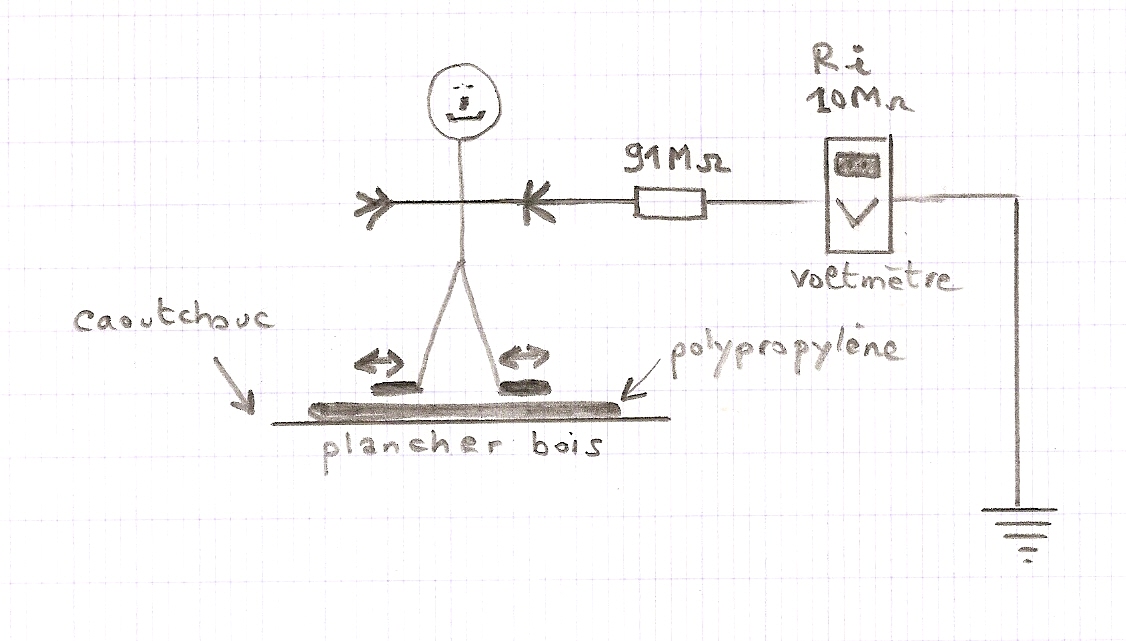 Ri
10MΩ
91MΩ
V
voltmètre
caoutchouc
polypropylène
plancher bois